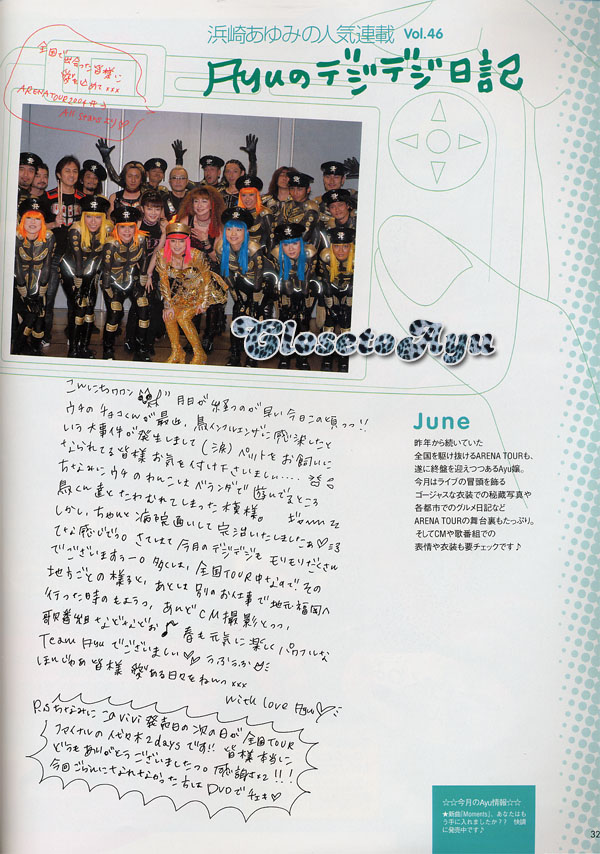 浜崎あゆみの人気連載 Vol.46
Ayuのデジデジ日記
全国で出会った皆様に
愛を込めて xxx
ARENA TOUR 2004 A
All Stars より
Close to Ayu
こんにちワワン 月日が経つのが早い今日この頃っっ!!
ウチのチョコくんが最近、鳥インフルエンザに感染したと
いう大事件が発生しまして(涙)ペットをお飼いに
なられてる皆様お気を付け下さいましい‥‥
ちなみにウチのわんこはベランダで遊んでるところ
鳥くん達とたわむれてしまった模様。
しかし、ちゃんと病院通いして完治いたしましたぁ
てな感じでっ。さてさて今月のデジデジもモリモリだくさん
でございますぅー。多くは、全国TOUR中なので、その
地方ごとの様子と、あとは別のお仕事で地元福岡へ
行った時のもようっ、あんど CM撮影とっっ、
歌番組などなどぉ 春も元気に楽しくパワフルな
Team Ayu でございましい♡♡ うふうふ
ほいじゅぁ皆様 愛ある日々をねっっ xxx
with love Ayu♡
P.S ちなみにこのvivi発売日の次の日が全国TOUR
ファイナルの代々木2daysです!! 皆様本当に
どうもありがとうございましたっ。感謝x2!!!
今回ごらんになれなかった方はDVDでチェキ♡
June
昨年から続いていた
全国を駆け抜けるARENA TOURも、
遂に終盤を迎えつつあるAyu嬢。
今月はライブの冒頭を飾る
ゴージャスな衣装での秘蔵写真や
各都市でのグルメ日記など
ARENA TOURの舞台裏もたっぷり。
そしてCMや歌番組での
表情や衣装も要チェックです♪
☆☆今月のAyu情報☆☆
★新曲「Moments」、あなたはも
う手に入れましたか?? 快調
に発売中です♪
32